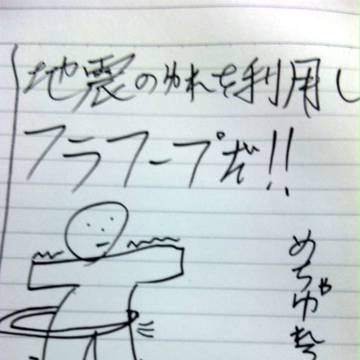 地震のゆれを利用し
フラフープだ!!
めちゃゆれる